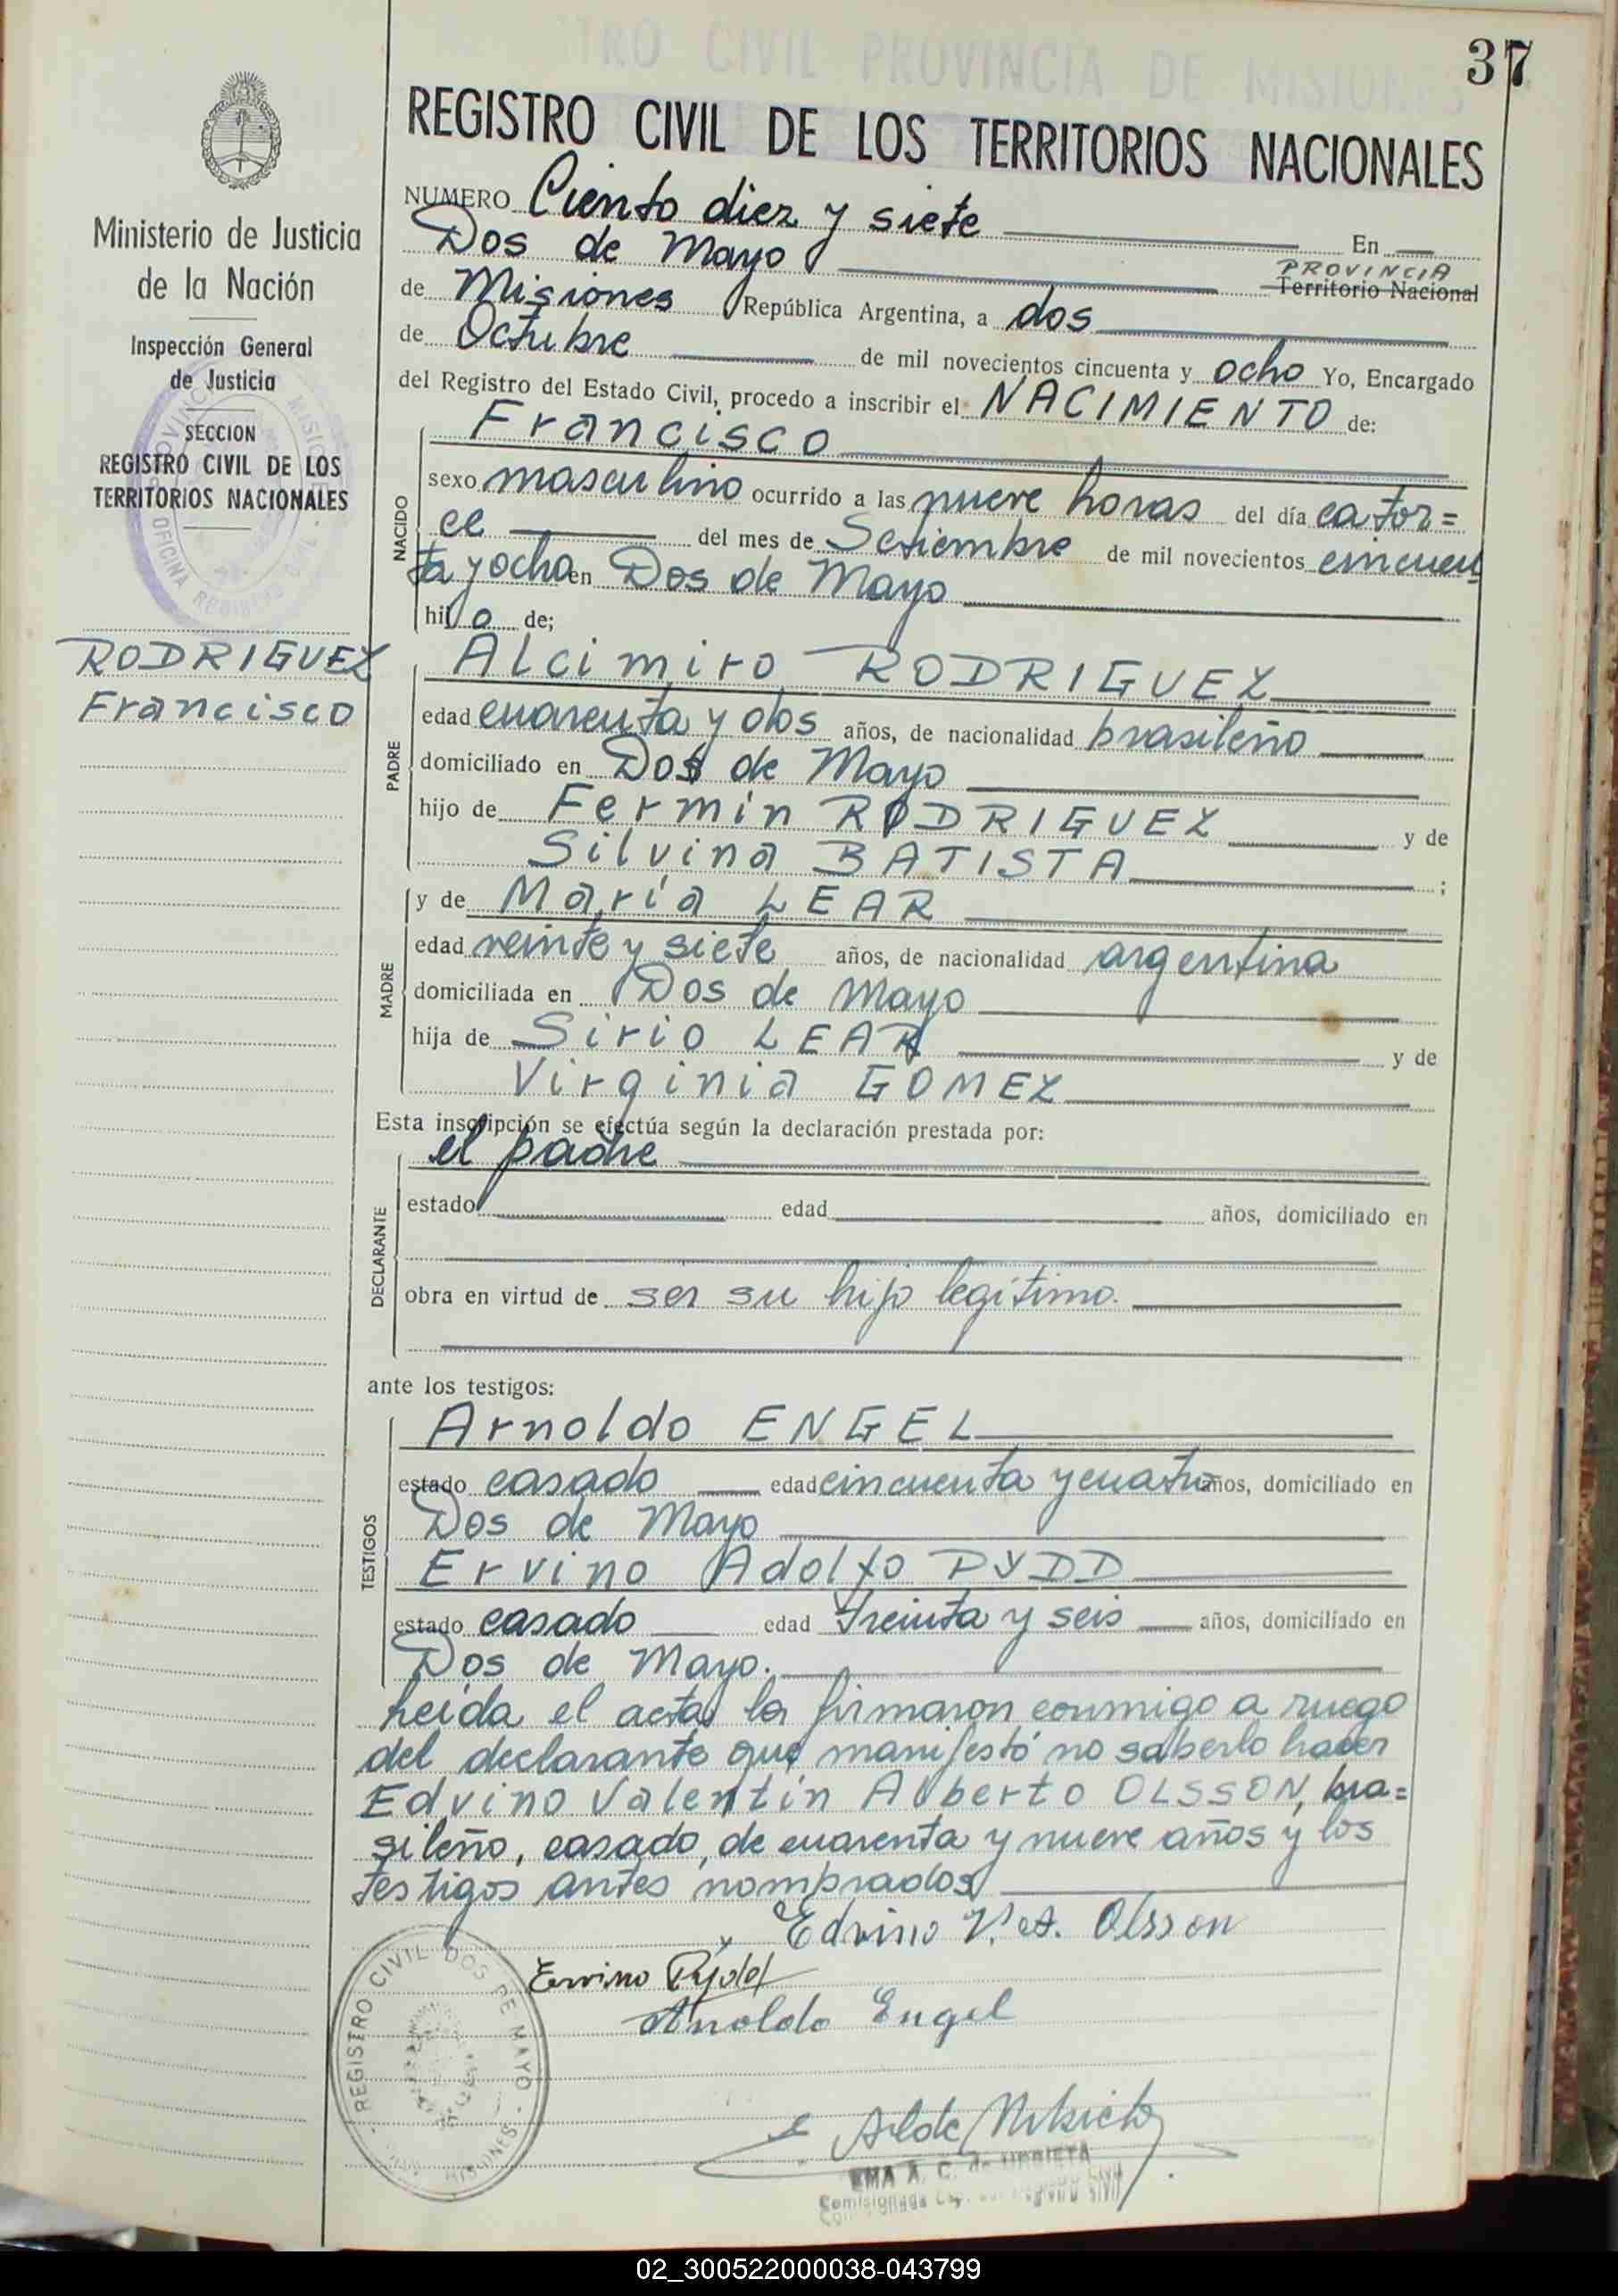 37
REGISTRO CIVIL PROVINCIA DE MISIONES
REGISTRO CIVIL DE LOS TERRITORIOS NACIONALES
Ministerio de Justicia
de la Nación
Inspección General
de Justicia
SECCION
REGISTRO CIVIL DE LOS
TERRITORIOS NACIONALES
RODRIGUEZ
Francisco
NUMERO Ciento diez y siete En
Dos de Mayo PROVINCIA Territorio Nacional
de Misiones República Argentina, a dos
de Octubre de mil novecientos cincuenta y ocho Yo, Encargado
del Registro del Estado Civil, procedo a inscribir el NACIMIENTO de:
NACIDO
Francisco
sexo masculino ocurrido a las nueve horas del día cator=
ce del mes de Setiembre de mil novecientos cincuen
ta y ocho en Dos de Mayo
hijo de;
PADRE
Alcimiro RODRIGUEZ
edad cuarenta y dos años, de nacionalidad brasileño
domiciliado en Dos de Mayo
hijo de Fermin RODRIGUEZ y de
Silvina BATISTA;
MADRE
y de María LEAR
edad veinte y siete años, de nacionalidad argentina
domiciliada en Dos de Mayo
hija de Sirio LEAR y de
Virginia GOMEZ
Esta inscripción se efectúa según la declaración prestada por:
DECLARANTE
el padre
estado edad años, domiciliado en
obra en virtud de ser su hijo legítimo.
ante los testigos:
TESTIGOS
Arnoldo ENGEL
estado casado edad cincuenta y cuatro años, domiciliado en
Dos de Mayo
Ervino Adolfo PYDD
estado casado edad treinta y seis años, domiciliado en
Dos de Mayo.
Leída el acta la firmaron conmigo a ruego
del declarante que manifestó no saberlo hacer
Edvino Valentín Alberto OLSSON, bra=
sileño, casado, de cuarenta y nueve años y los
testigos antes nombrados
Edvino V. A. Olsson
Ervino Pydd
Arnoldo Engel
REGISTRO CIVIL DOS DE MAYO MISIONES
EMA A. C. de URRIETA
02_300522000038-043799